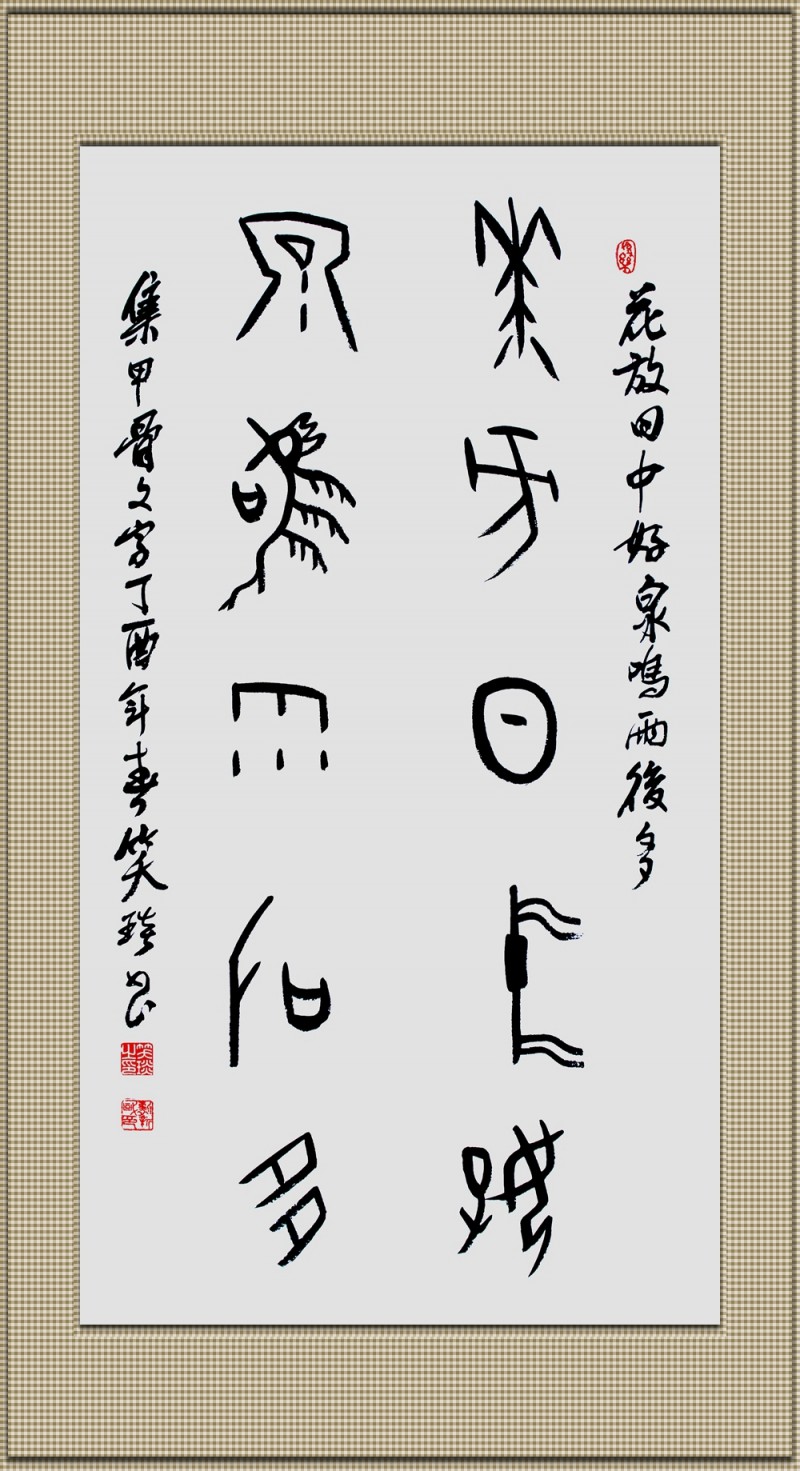 花放日中好泉鳴雨後多
花方日中好
泉鳴雨后多
集甲骨文字丁酉年春笑琰